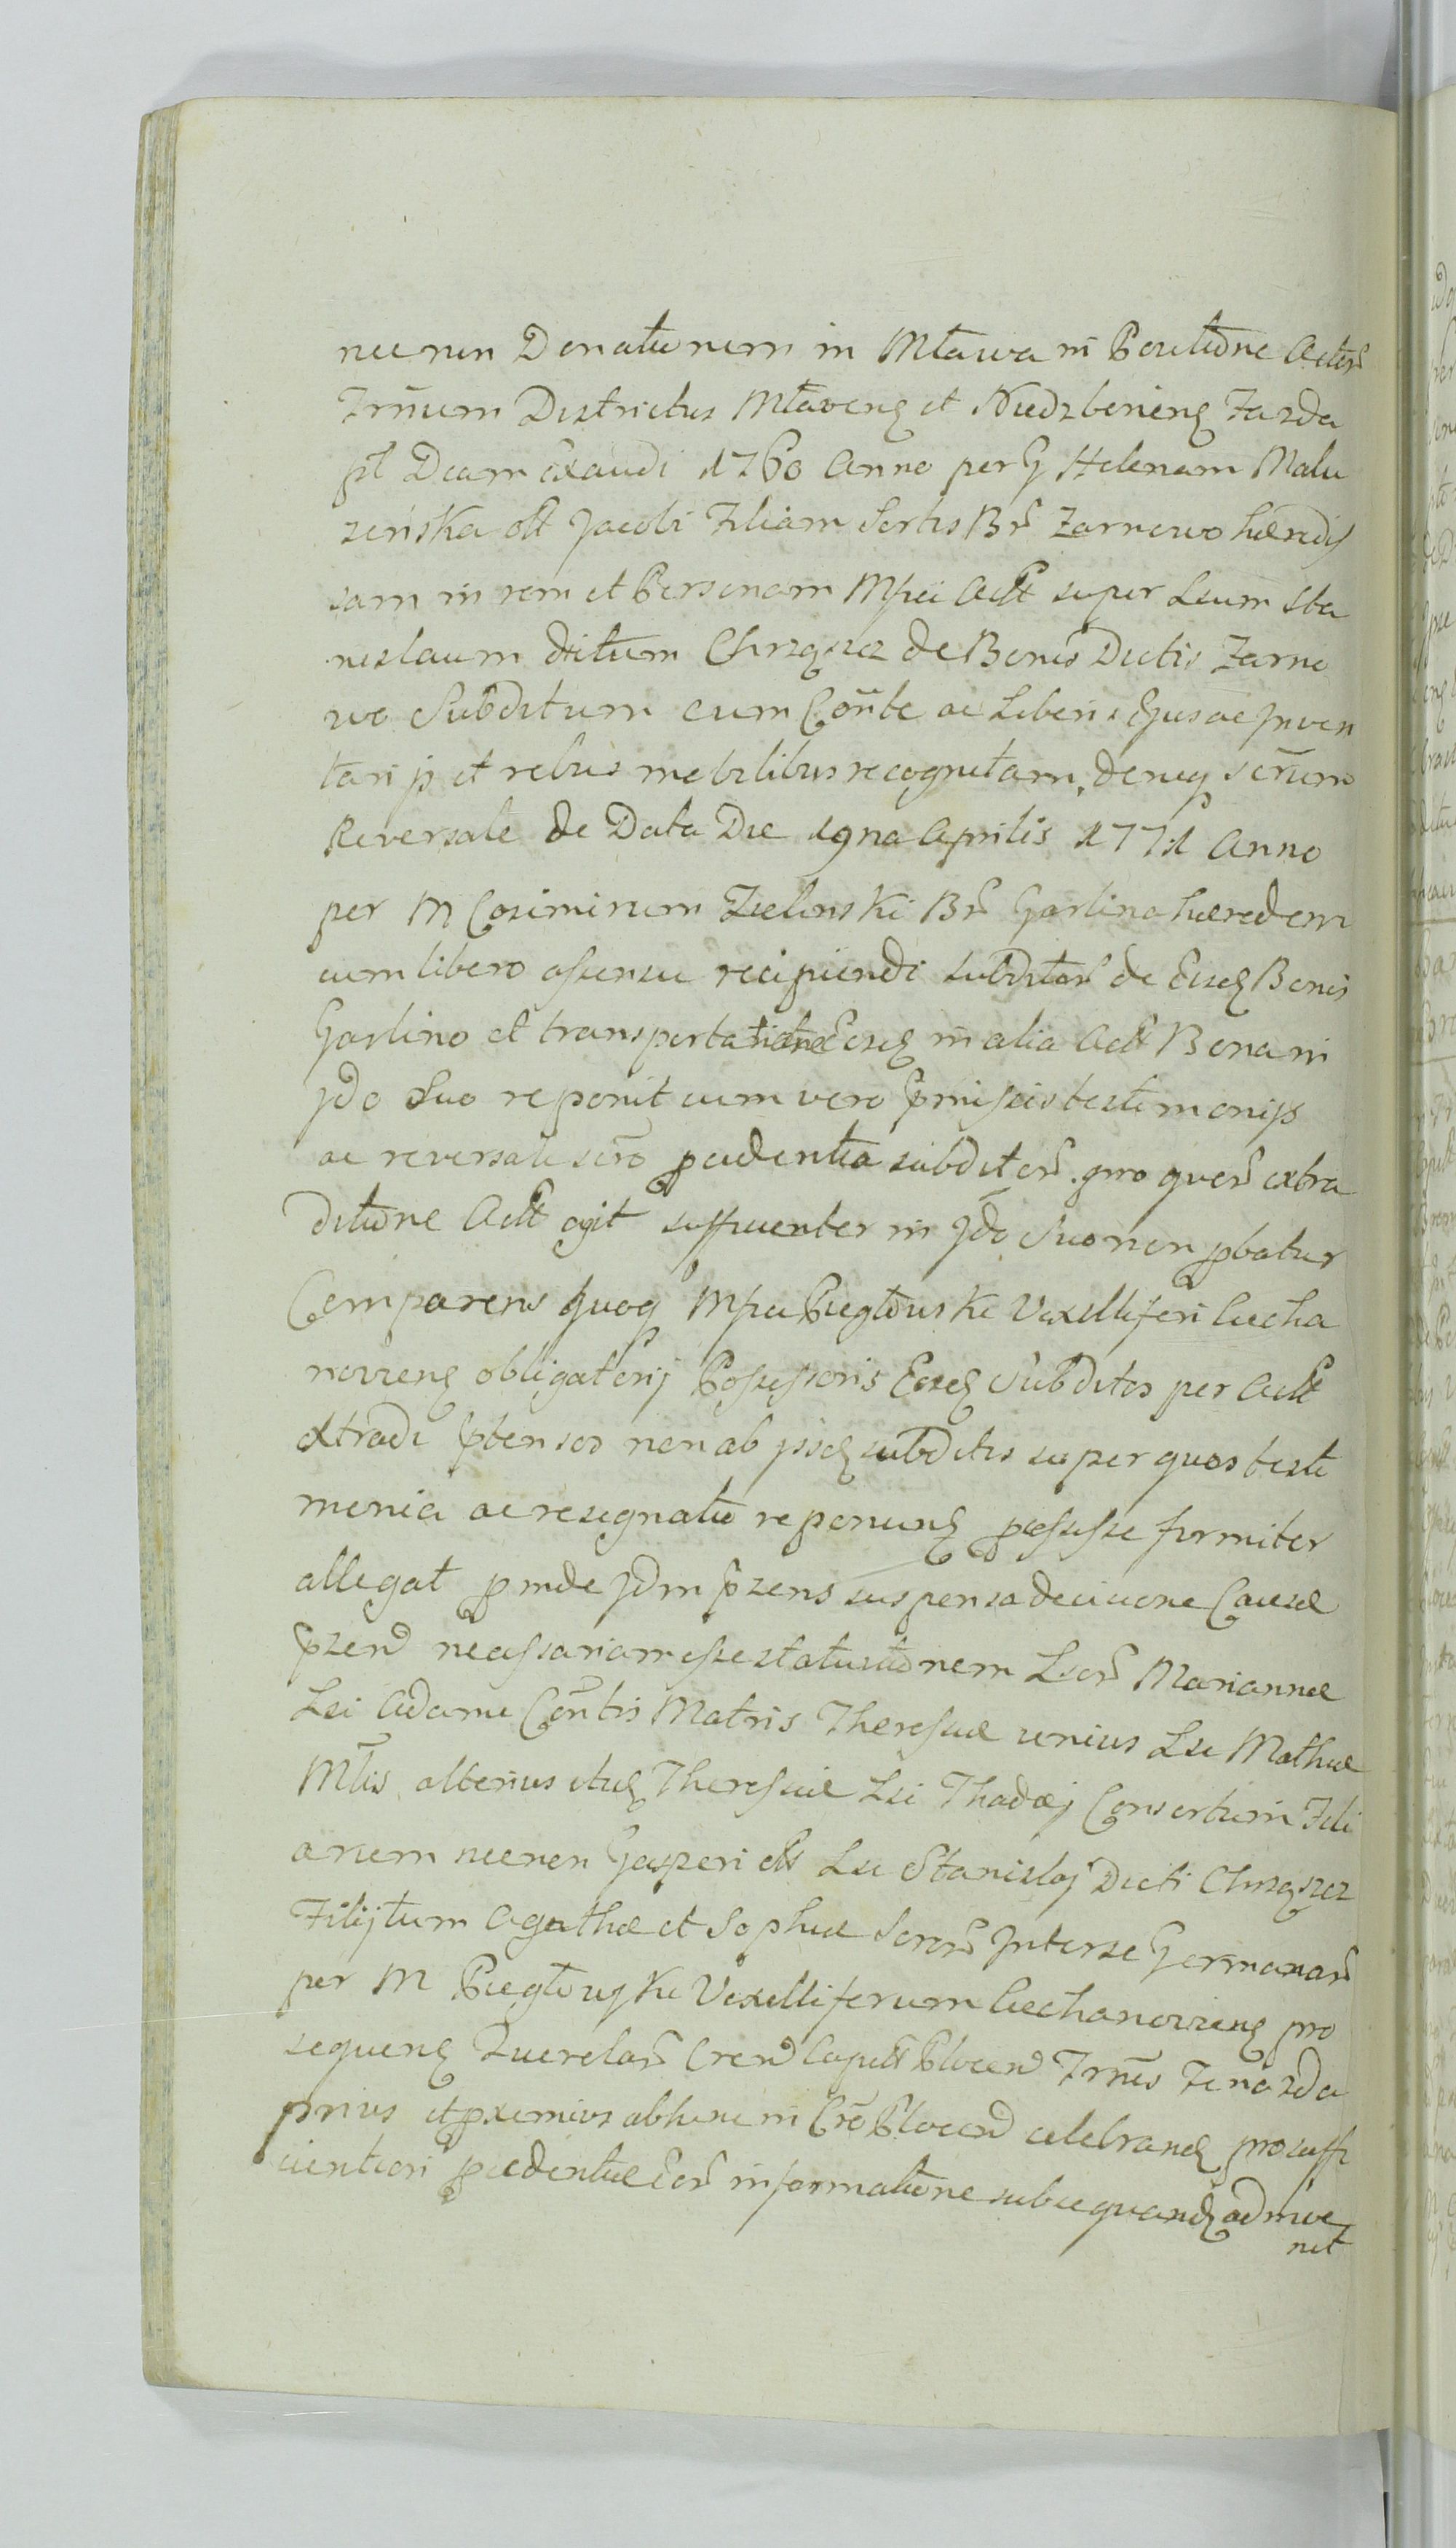 necnon Donationem in Mława in Positione Actor
Trnum Districtus Mławens et Niedzboriens Fazda
pt Dcam Exaudi 1760 Anno per G Helenam Malu
zeńska olt Jacobi Filiam Sortis Br Zarnowo hæredis
sam in rem et Personam Mfici Actt super Lsum Sta
nislaum dictum Chrząszcz de Bonis Dictis Zarno
wo Subditum cum Conte ac Liberis Ejus ac Inven
tarijs et rebus mobilibus recognitam, deniq scrum
Reversale de Data Die 19na Aprilis 1771 Anno
per M Casimirum Zielinski Br Garlino hæredem
cum libero assensu recipiendi subditor de Eisd Bonis
Garlino et transportatione Eosd in alia Actt Bona in
Jdo Suo reponit cum vero pmissis testimonijs
ac reversali scro pcedentia subditor pro quor extra
ditione Actt agit sufficienter in Jdo Suo non pbatur
Comparens quoq Mfici Piegłowski Vexilliferi Ciecha
noviens obligatorij Possessoris Eosd Subditos per Actt
extradi ptensos non ab ijsd subditis super quos testi
monia ac resignatio reponuns pcessisse firmiter
allegat pinde Jdm pzens suspensa decisione Causæ
pzen necessariam esse statuitionem Lsor Mariannæ
Lsi Adami Contis Matris Theresiæ unius Lsi Mathiæ
Mtlis alterius itid Theresiæ Lsi Thadæj Consortum Fili
arum necnon Gasperi olt Lsi Stanislaj Dicti Chrząszcz
Filij tum Agathæ et Sophiæ Soror Inter se Germanar
per M Piegłowski Vexilliferum Ciechanoviens pro
sequens Querelar Cren Capitt Plocen Trmis Fenazda
prius et pximius abhinc in Cro Plocen celebrand pro suffi
cientiori pcedentiæ Eor informatione subsequand adinve
nit